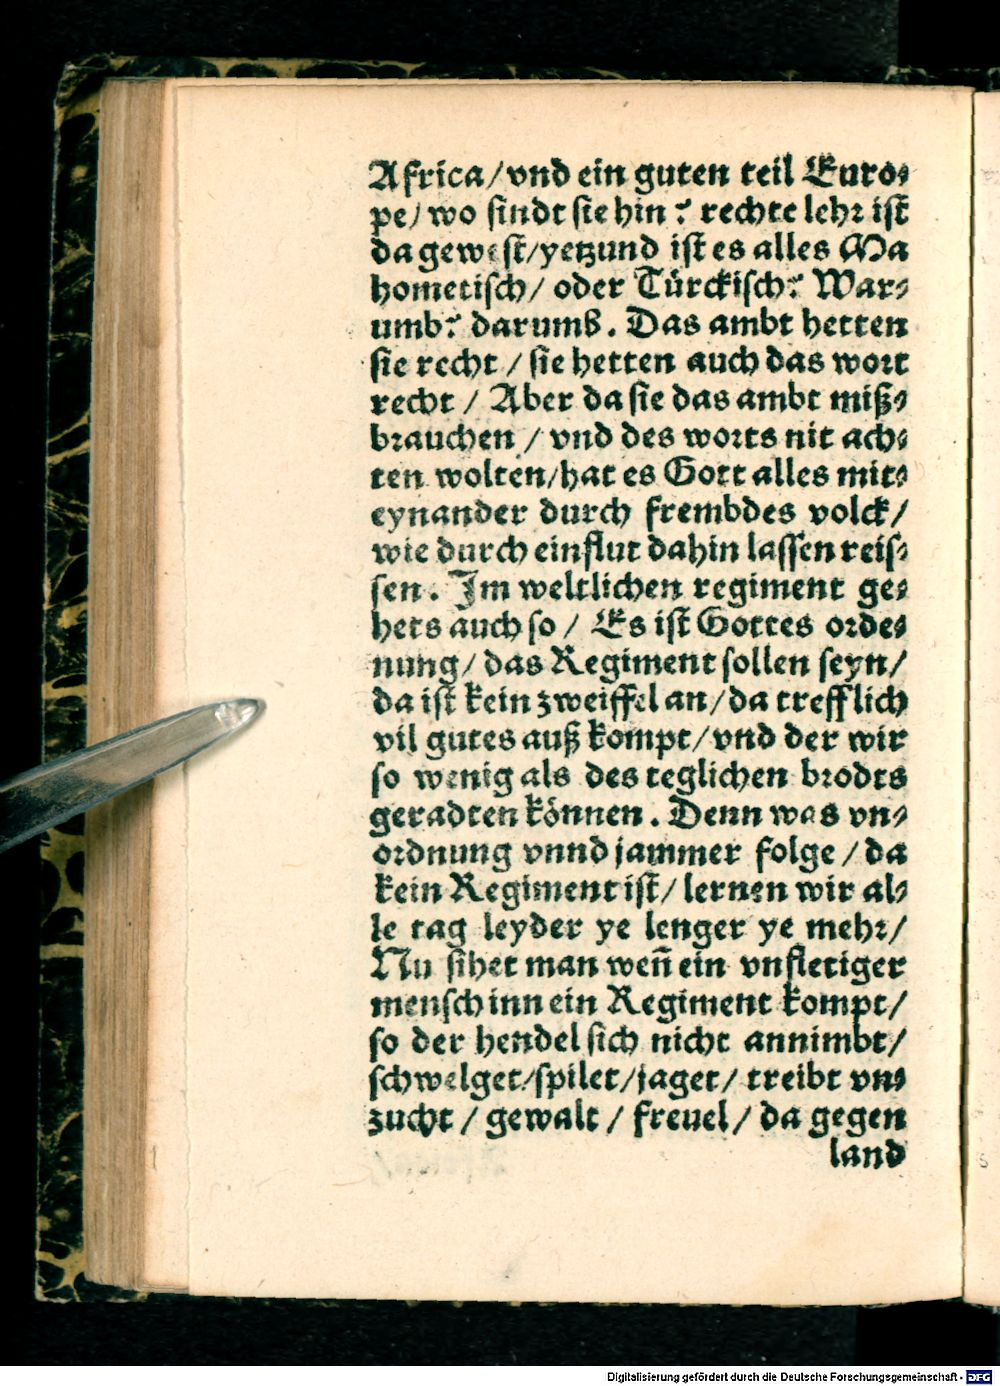 Africa/vnd ein guten teil Euro⸗
pe/ wo sindt sie hin? rechte lehr ist
da gewest/yetzund ist es alles Ma
hometisch/ oder Türckisch? War⸗
umb? darumb. Das ambt hetten
sie recht / sie hetten auch das wort
recht / Aber da sie das ambt miß⸗
brauchen / vnd des worts nit ach⸗
ten wolten/hat es Gott alles mit⸗
eynander durch frembdes volck/
wie durch einflut dahin lassen reis⸗
sen. Im weltlichen regiment ge⸗
hets auch so / Es ist Gottes orde⸗
nung/ das Regiment sollen seyn/
da ist kein zweiffel an/da trefflich
vil gutes auß kompt/vnd der wir
so wenig als des teglichen brodts
geradten können. Denn was vn⸗
ordnung vnnd jammer folge / da
kein Regiment ist/ lernen wir al⸗
le tag leyder ye lenger ye mehr/
Nu sihet man weñ ein vnfletiger
mensch inn ein Regiment kompt/
so der hendel sich nicht annimbt/
schwelget/spilet/jaget/ treibt vn⸗
zucht / gewalt / freuel/ da gegen
land
Digitalisierung gefördert durch die Deutsche Forschungsgemeinschaft - DFG